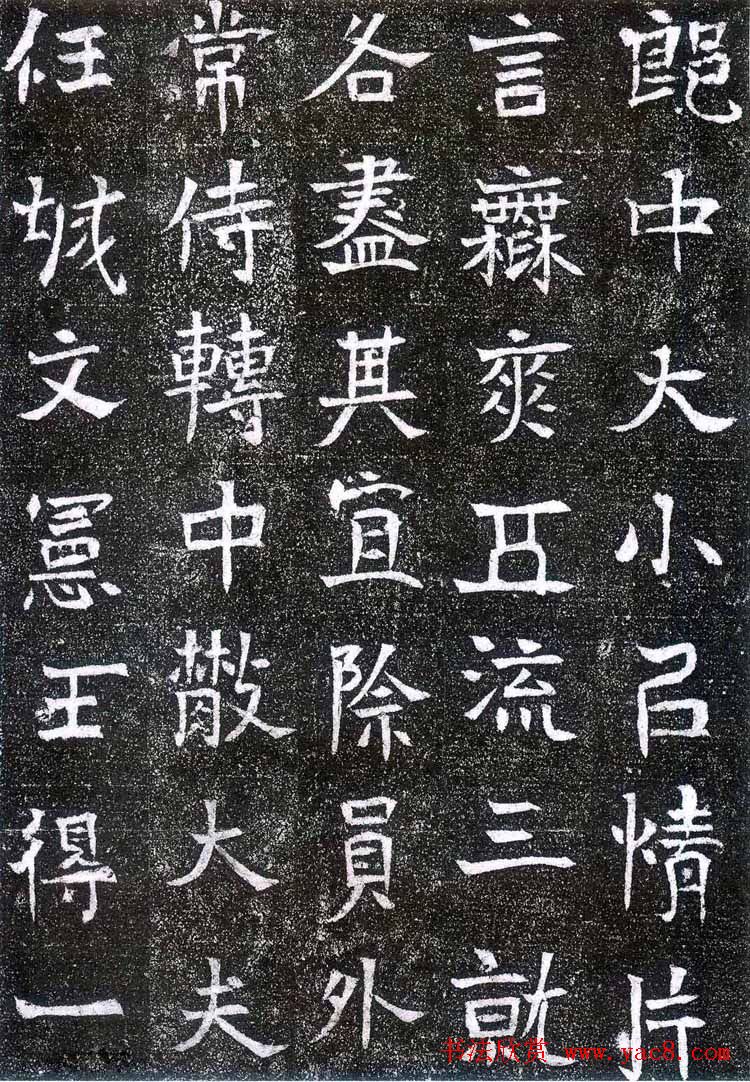 郎中大小㠯情片
言靡爽五流三就
各盡其宜除員外
常侍轉中散大夫
任城文憲王得一
书法欣赏 www.yac8.com